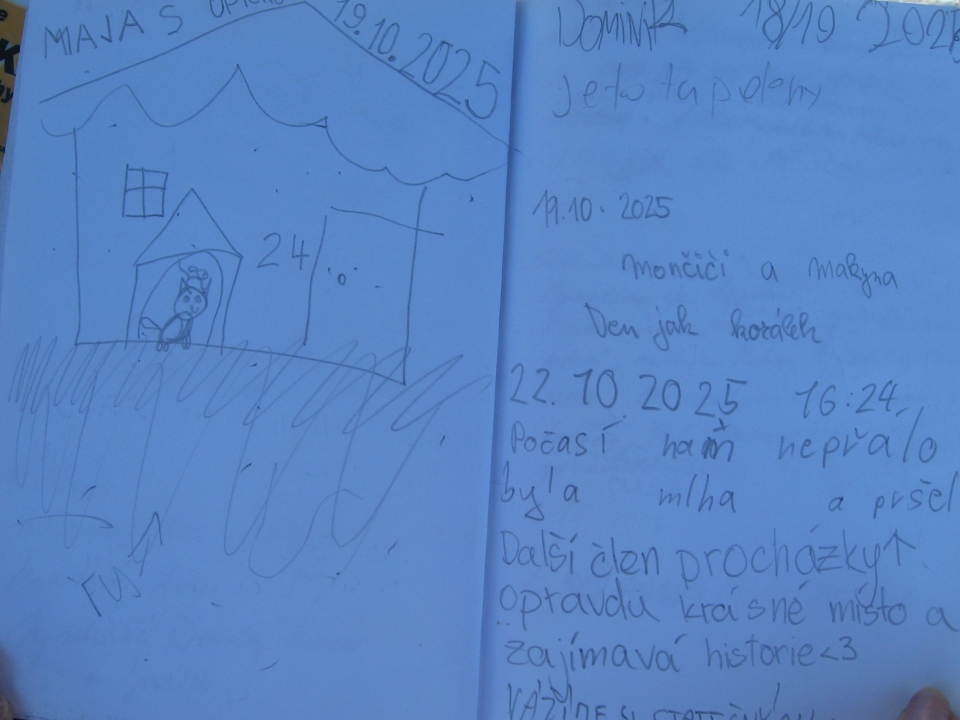 MAJA S
19.10.2025
24
FUJ
Dominik 18/19
je to tu pěkný
19.10. 2025
Mončiči a makyna
Den jak korálek
22. 10 2025 16:24
Počasí nam nepřálo
byla mlha a pršel
Další člen procházky↑
opravdu krásné místo a
zajímavá historie<3